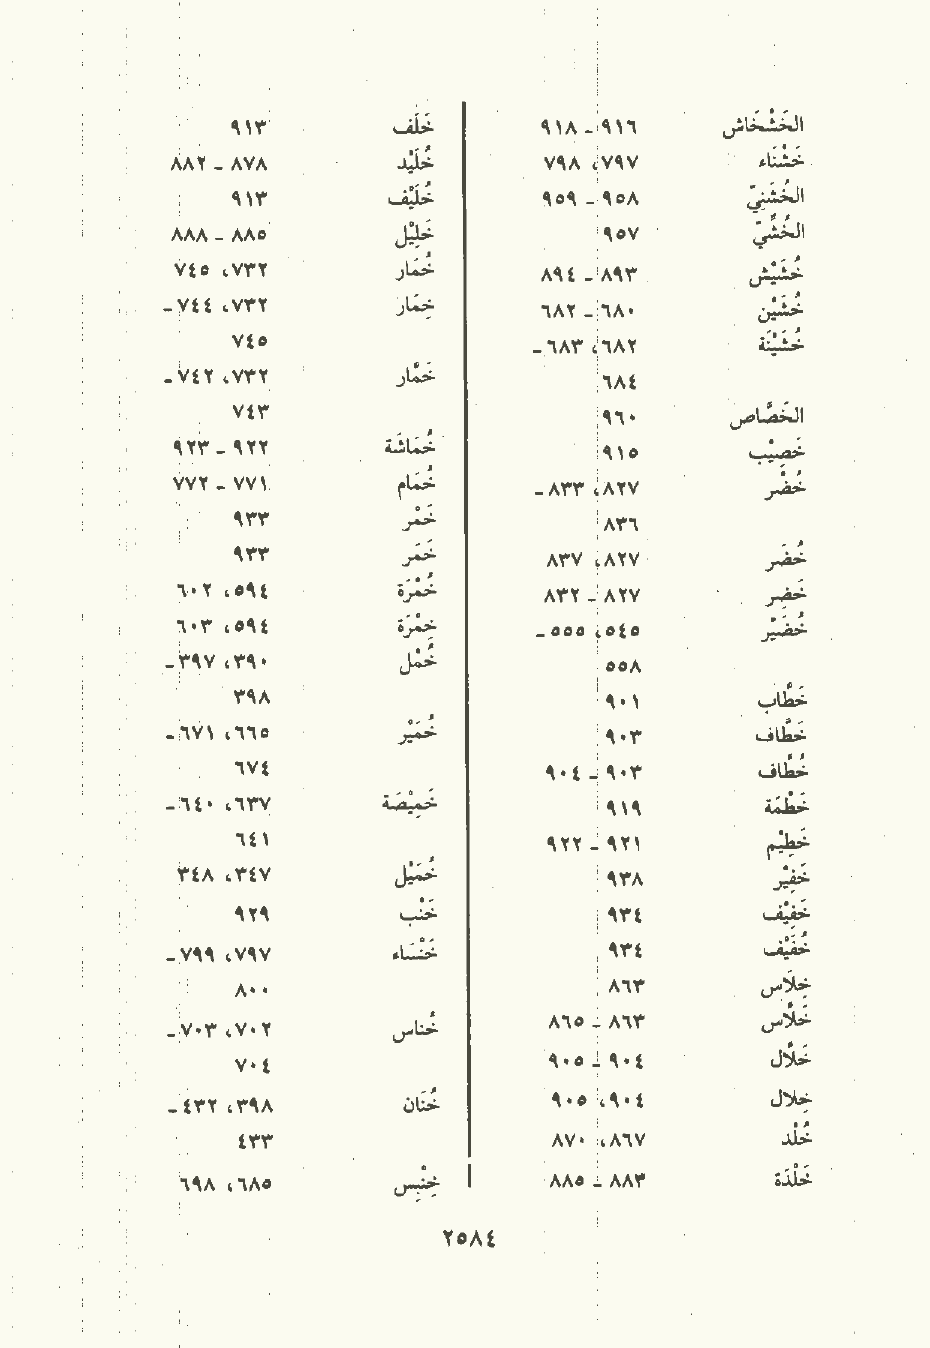 الخَشْخَاش ٩١٦ ـ ٩١٨
خَشْنَاء ٧٩٧، ٧٩٨
الخُشَنِيّ ٩٥٨ ـ ٩٥٩
الخُشِّيّ ٩٥٧
خُشَيْش ٨٩٣ ـ ٨٩٤
خُشَيْن ٦٨٠ ـ ٦٨٢
خُشَيْنَة ٦٨٢، ٦٨٣ ـ
٦٨٤
الخَصَّاص ٩٦٠
خَصِيْب ٩١٥
خُضْر ٨٢٧، ٨٣٣ ـ
٨٣٦
خُضَر ٨٢٧، ٨٣٧
خَضِر ٨٢٧ ـ ٨٣٢
خُضَيْر ٥٤٥، ٥٥٥ ـ
٥٥٨
خَطَّاب ٩٠١
خَطَّاف ٩٠٣
خُطَّاف ٩٠٣ ـ ٩٠٤
خَطْمَة ٩١٩
خَطِيْم ٩٢١ ـ ٩٢٢
خَفِيْر ٩٣٨
خَفِيْف ٩٣٤
خُفَيْف ٩٣٤
خِلَاس ٨٦٣
خَلَّاس ٨٦٣ ـ ٨٦٥
خَلَّال ٩٠٤ ـ ٩٠٥
خِلال ٩٠٤، ٩٠٥
خُلْد ٨٦٧، ٨٧٠
خَلْدَة ٨٨٣ ـ ٨٨٥
خَلَف ٩١٣
خُلَيْد ٨٧٨ ـ ٨٨٢
خُلَيْف ٩١٣
خَلِيْل ٨٨٥ ـ ٨٨٨
خُمَار ٧٣٢، ٧٤٥
خِمَار ٧٣٢، ٧٤٤ ـ
٧٤٥
خَمَّار ٧٣٢، ٧٤٢ ـ
٧٤٣
خُمَاشَة ٩٢٢ ـ ٩٢٣
خُمَام ٧٧١ ـ ٧٧٢
خَمْر ٩٣٣
خَمَر ٩٣٣
خُمْرَة ٥٩٤، ٦٠٢
خِمْرَة ٥٩٤، ٦٠٣
خُمْل ٣٩٠، ٣٩٧ ـ
٣٩٨
خُمَيْر ٦٦٥، ٦٧١ ـ
٦٧٤
خَمِيْصَة ٦٣٧، ٦٤٠ ـ
٦٤١
خُمَيْل ٣٤٧، ٣٤٨
خَنْب ٩٢٩
خَنْسَاء ٧٩٧، ٧٩٩ ـ
٨٠٠
خُناس ٧٠٢، ٧٠٣ ـ
٧٠٤
خُنَان ٣٩٨، ٤٣٢ ـ
٤٣٣
خِنْبِس ٦٨٥، ٦٩٨
٢٥٨٤